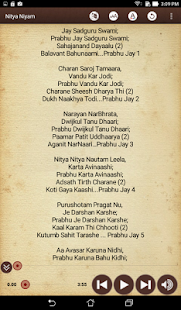 3:09 PM
Nitya Niyam
Jay Sadguru Swami;
Prabhu Jay Sadguru Swami;
Sahajanand Dayaalu (2)
Balavant Bahunaami...Prabhu Jay 1
Charan Saroj Tamaara,
Vandu Kar Jodi;
Prabhu Vandu Kar Jodi;
Charane Sheesh Dharya Thi (2)
Dukh Naakhya Todi...Prabhu Jay 2
Narayan NarBhrata;
Dwijkul Tanu Dhaari;
Prabhu Dwijkul Tanu Dhaari;
Paamar Patit Uddhaarya (2)
Aganit NarNaari...Prabhu Jay 3
Nitya Nitya Nautam Leela,
Karta Avinaashi;
Prabhu Karta Avinaashi;
Adsath Tirth Charane (2)
Koti Gaya Kaashi...Prabhu Jay 4
Purushotam Pragat Nu,
Je Darshan Karshe;
Prabhu Je Darshan Karshe;
Kaal Karam Thi Chhooti (2)
Kutumb Sahit Tarshe ... Prabhu Jay 5
Aa Avasar Karuna Nidhi,
Prabhu Karuna Bahu Kidhi;
0.00
3:53